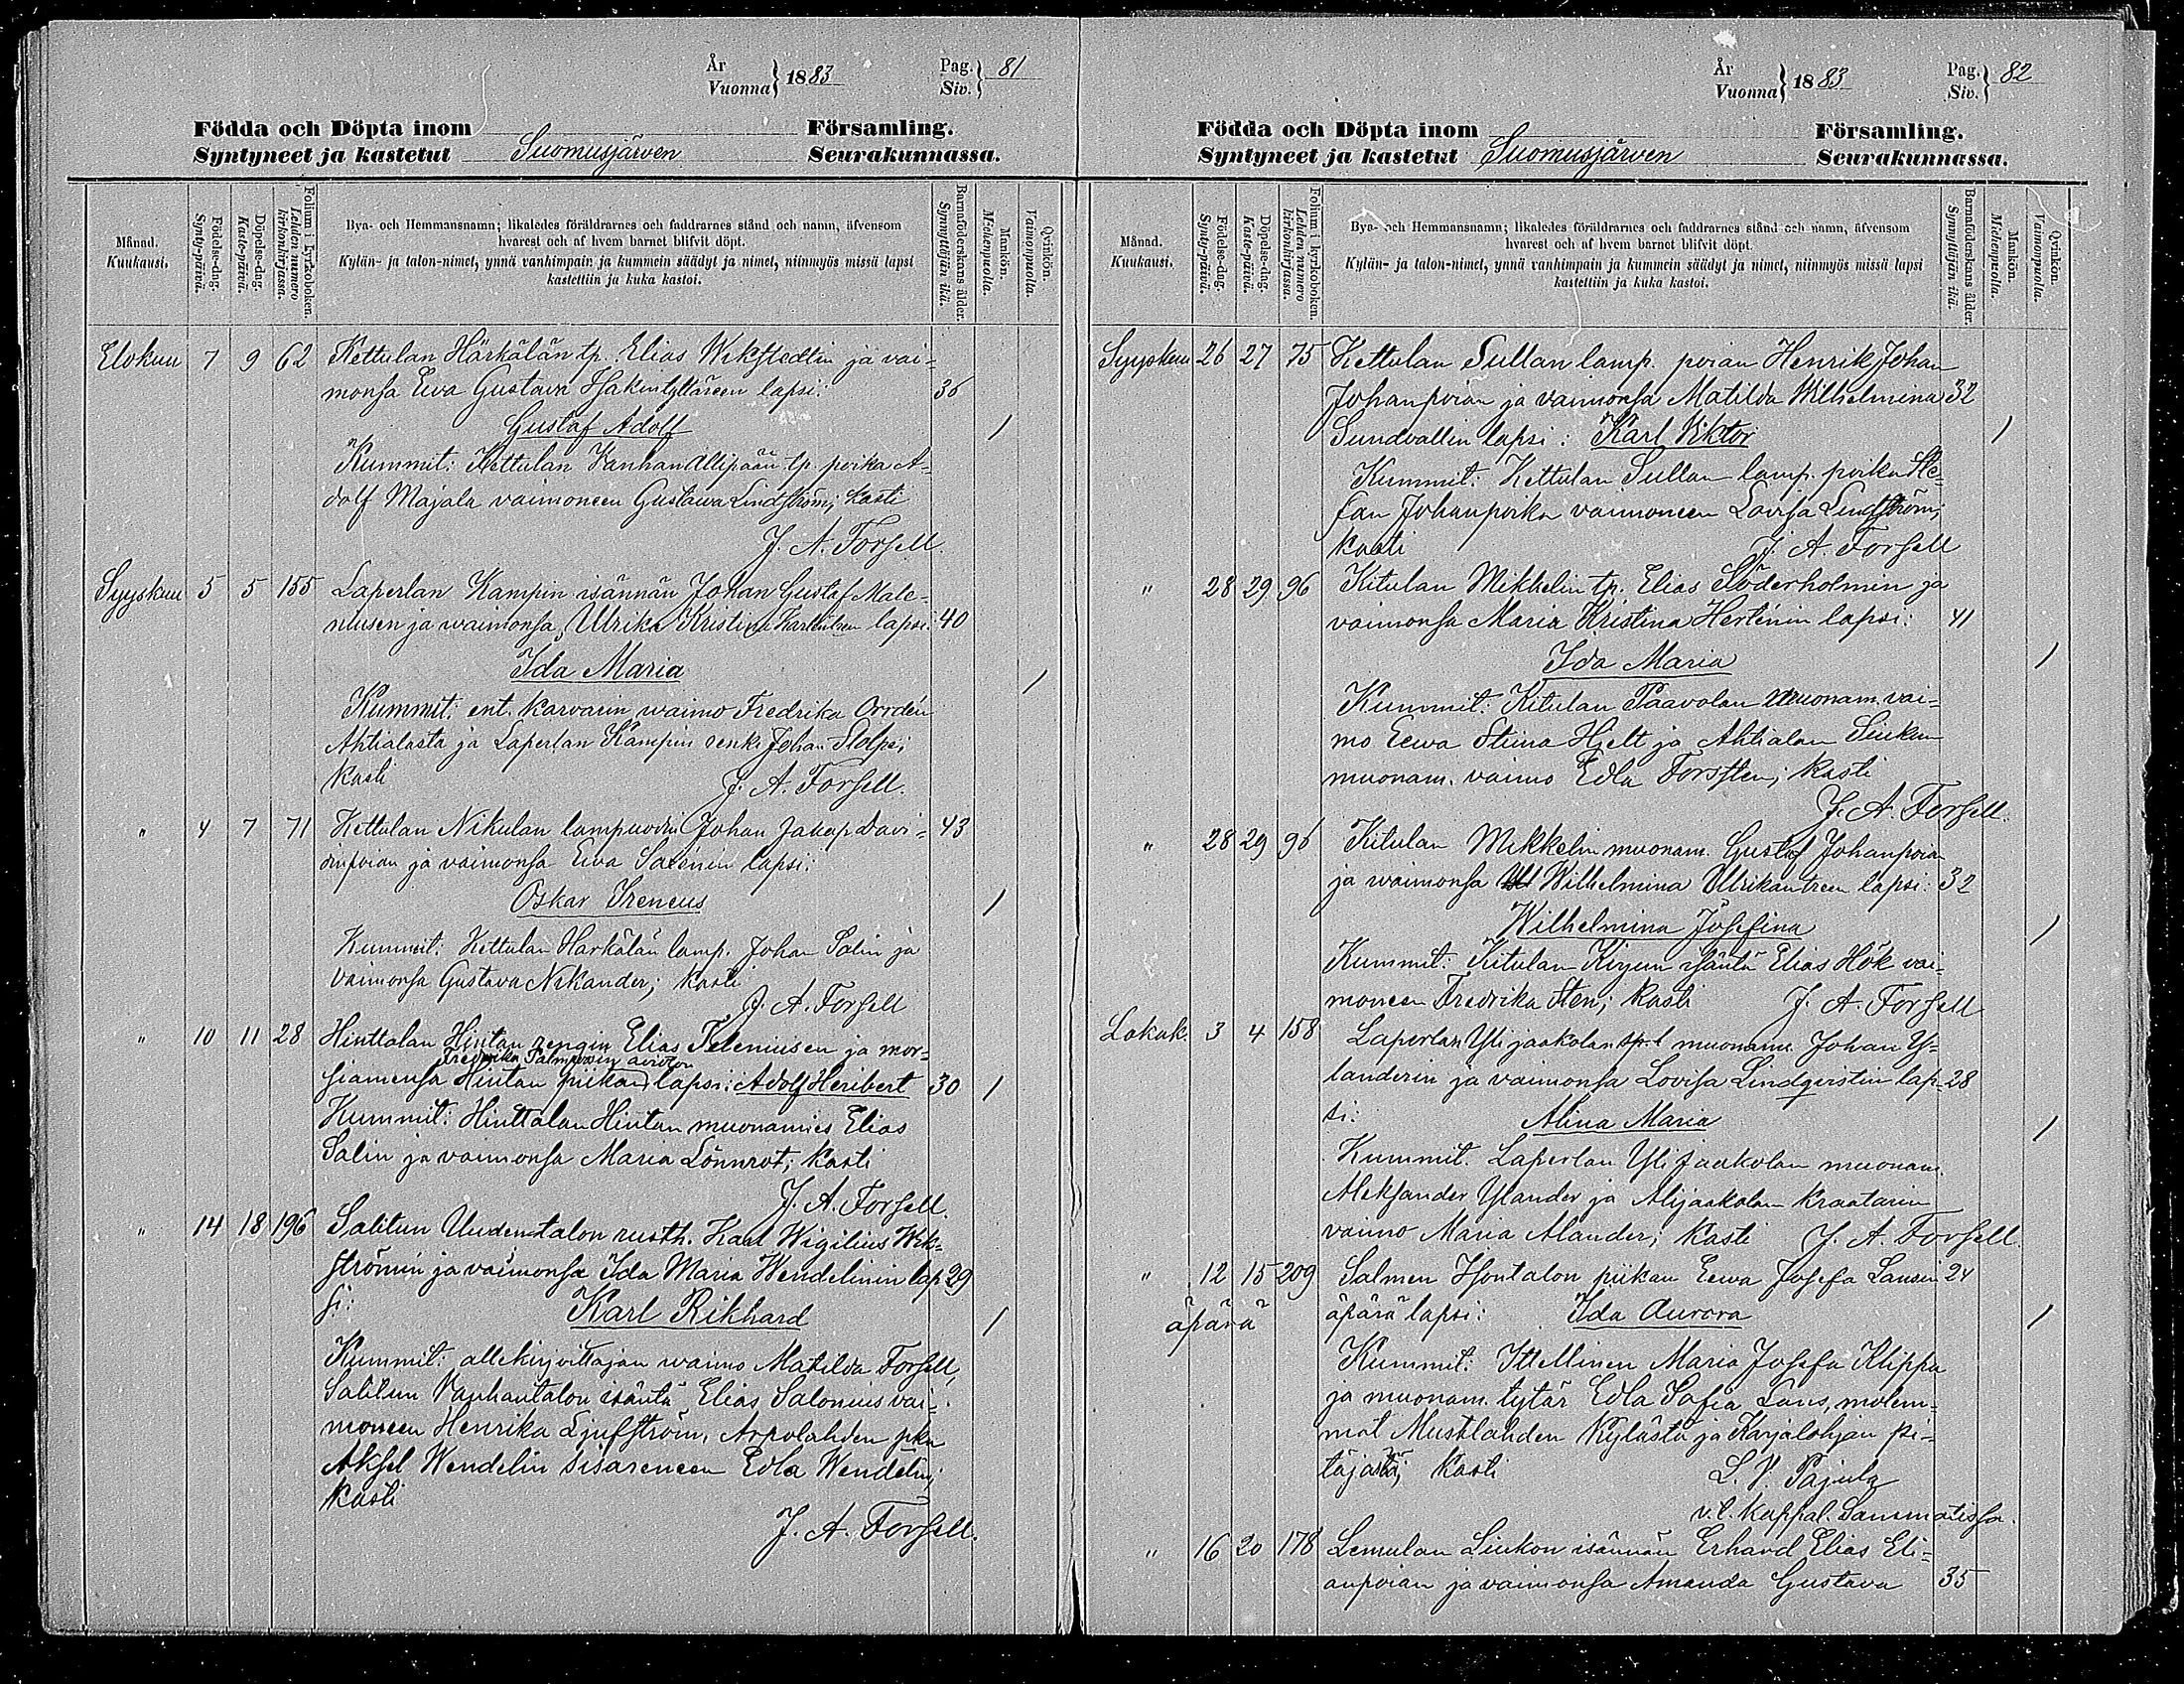 År
Vuonna } 1883
Pag.
Siv. } 81
Födda och Döpta inom Församling.
Syntyneet ja kastetut Suomusjärven Seurakunnassa.
Månad.
Kuukausi.
Födelse-dag.
Synty-päivä.
Döpelse-dag.
Kaste-päivä.
Folium i kyrkoboken.
Lehden numero
kirkonkirjassa.
Bya- och Hemmansnamn; likaledes föräldrarnes och faddrarnes stånd och namn, äfvensom
hvarest och af hvem barnet blifvit döpt.
Kylän- ja talon-nimet, ynnä vanhimpain ja kummein säädyt ja nimet, niinmyös missä lapsi
kastettiin ja kuka kastoi.
Barnaföderskans ålder.
Synnyttäjän ikä.
Mankön.
Miehenpuolia.
Qvinkön.
Vaimonpuolia.
Elokuu 7 9 62 Kettulan Härkälän tp. Elias Wikstedtin ja vai-
monsa Eva Gustava Isakintyttäreen lapsi: 36
Gustaf Adolf 1
Kummit: Kettulan Vanhan Allipään tp. poika A-
dolf Majala vaimoneen Gustawa Lindström; kasti
J. A. Forsell.
Syyskuu 5 5 155 Laperlan Kampin isännän Johan Gustaf Male-
niusen ja waimonsa Ulrika Kristina lapsi: 40
Ida Maria 1
Kummit: ent. Karvarin waimo Fredrika Orrdén
Ahtialasta ja Laperlan Kampin renki Johan Stolpe;
kasti J. A. Forsell.
" 4 7 71 Kettulan Nikulan lampuodin Johan Jakap Davi- 43
dinpoian ja vaimonsa Ewa Salenin lapsi:
Oskar Ireneus 1
Kummit: Kettulan Harkälän lamp. Johan Salin ja
vaimonsa Gustava Nikander; kasti
J. A. Forsell
" 10 11 28 Hinttalan Hintan rengin Elias Feleniusen ja mor-
Fredrika Palmroosin aviton
siamensa Hintan piikan lapsi: Adolf Heribert 30 1
Kummit: Hinttalan Hintan muonamies Elias
Salin ja vaimonsa Maria Lönnrot; kasti
J. A. Forsell.
" 14 18 196 Salitun Uudentalon rusth. Karl Wigilius Wik-
strömin ja vaimonsa Ida Maria Wendelinin lap 29
si: Karl Rikhard 1
Kummit: allekirjoittajan waimo Matilda Forsell,
Salitun Vanhantalon isäntä Elias Salonius vai-
moneen Henrika Ljufström, Arpolahden pka
Aksel Wendelin sisareneen Edla Wendelin;
kasti
J. A. Forsell.
År
Vuonna } 1883
Pag.
Siv. } 82
Födda och Döpta inom Församling.
Syntyneet ja kastetut Suomusjärven Seurakunnassa.
Månad.
Kuukausi.
Födelse-dag.
Synty-päivä.
Döpelse-dag.
Kaste-päivä.
Folium i kyrkoboken.
Lehden numero
kirkonkirjassa.
Bya- och Hemmansnamn; likaledes föräldrarnes och faddrarnes stånd och namn, äfvensom
hvarest och af hvem barnet blifvit döpt.
Kylän- ja talon-nimet, ynnä vanhimpain ja kummein säädyt ja nimet, niinmyös missä lapsi
kastettiin ja kuka kastoi.
Barnaföderskans ålder.
Synnyttäjän ikä.
Mankön.
Miehenpuolia.
Qvinkön.
Vaimonpuolia.
Syyskuu 26 27 75 Kettulan Sullan lamp. poian Henrik Johan
Johanpoian ja vaimonsa Matilda Wilhelmina 32
Sundvallin lapsi: Karl Viktor 1
Kummit: Kettulan Sullan lamp. poika Ste-
fan Johanpoika vaimoneen Lovisa Lindström;
kasti J. A. Forsell
" 28 29 96 Kitulan Mikkelin tp. Elias Söderholmin ja
vaimonsa Maria Kristina Hertenin lapsi: 41
Ida Maria 1
Kummit: Kitulan Paavolan muonam. vai-
mo Eewa Stiina Hjelt ja Ahtialan Siukun
muonam. vaimo Edla Forssten; kasti
J. A. Forsell.
" 28 29 96 Kitulan Mikkelin muonam. Gustaf Johanpoian
ja waimonsa Wilhelmina Ullrikantreen lapsi: 32
Wilhelmina Josefina 1
Kummit: Kitulan Kirjun isäntä Elias Hök vai-
moneen Fredrika Sten; kasti J. A. Forsell
Lokak. 3 4 158 Laperlan Yli jaakolan muonam. Johan Y-
landerin ja vaimonsa Lovisa Lindqvistin lap- 28
si: Alina Maria 1
Kummit. Laperlan Yli Jaakolan muonam.
Aleksander Ylander ja Alijaakolan kraatarin
vaimo Maria Alander; kasti J. A. Forsell.
" 12 15 209 Salmen Isontalon piikan Eewa Josefa Lansin 24
äpärä äpärä lapsi: Ida Aurora 1
Kummit: Itellinen Maria Josefa Klippa
ja muonam. tytär Edla Sofia Lans, molem-
mat Mustlahden kylästä ja Karjalohjan pi-
täjästä; kasti L. V. Pajula
v.t. kappal. Sammatissa.
" 16 20 178 Lemulan Liukon isännän Erhard Elias Eli-
anpoian ja vaimonsa Amanda Gustava 35